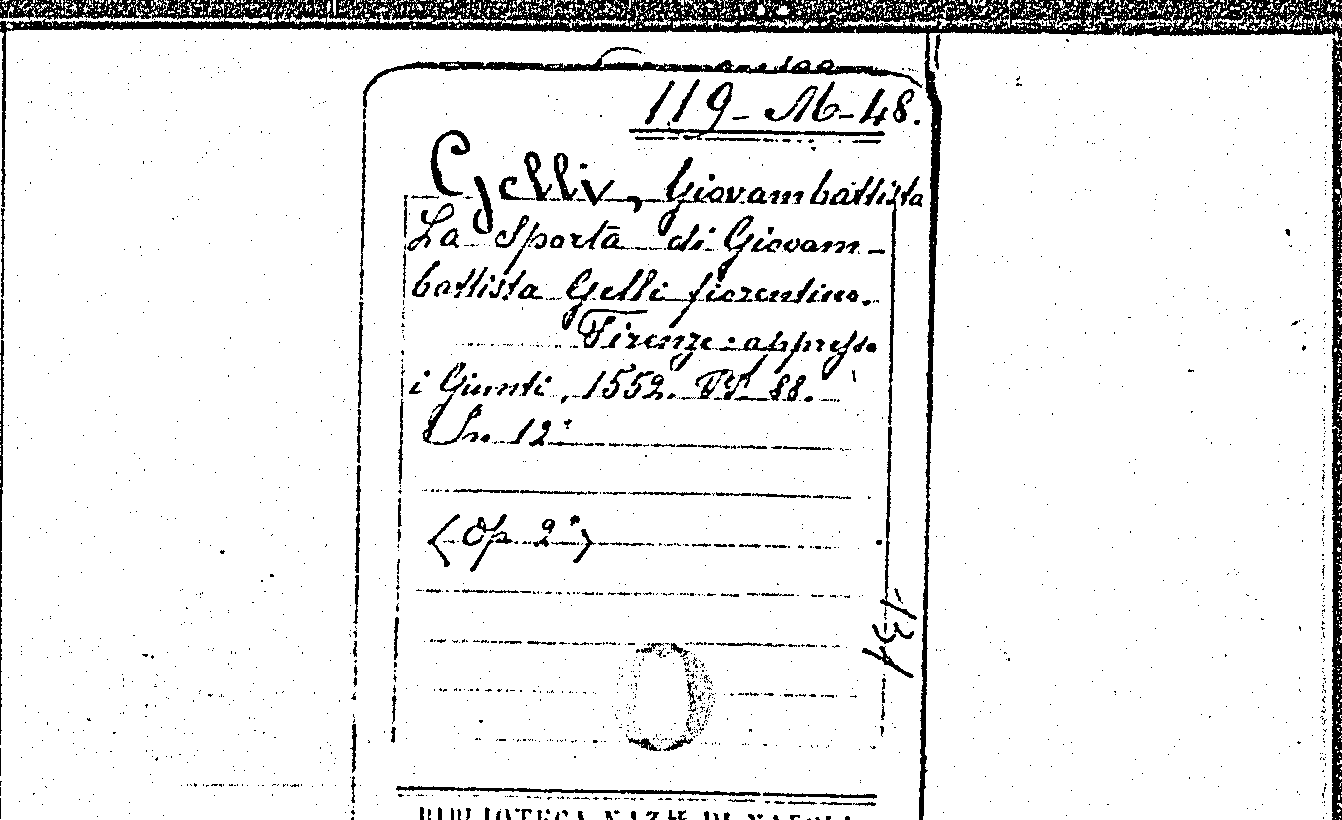 119-M-48.
Gelli, Giovambattista
La Sporta di Giovam-
battista Gelli fiorentino.
Firenze: appresso
i Giunti, 1552. PP. 88.
In 12°
(Op. 2ª)
134
BIBLIOTECA NAZ.LE DI NAPOLI